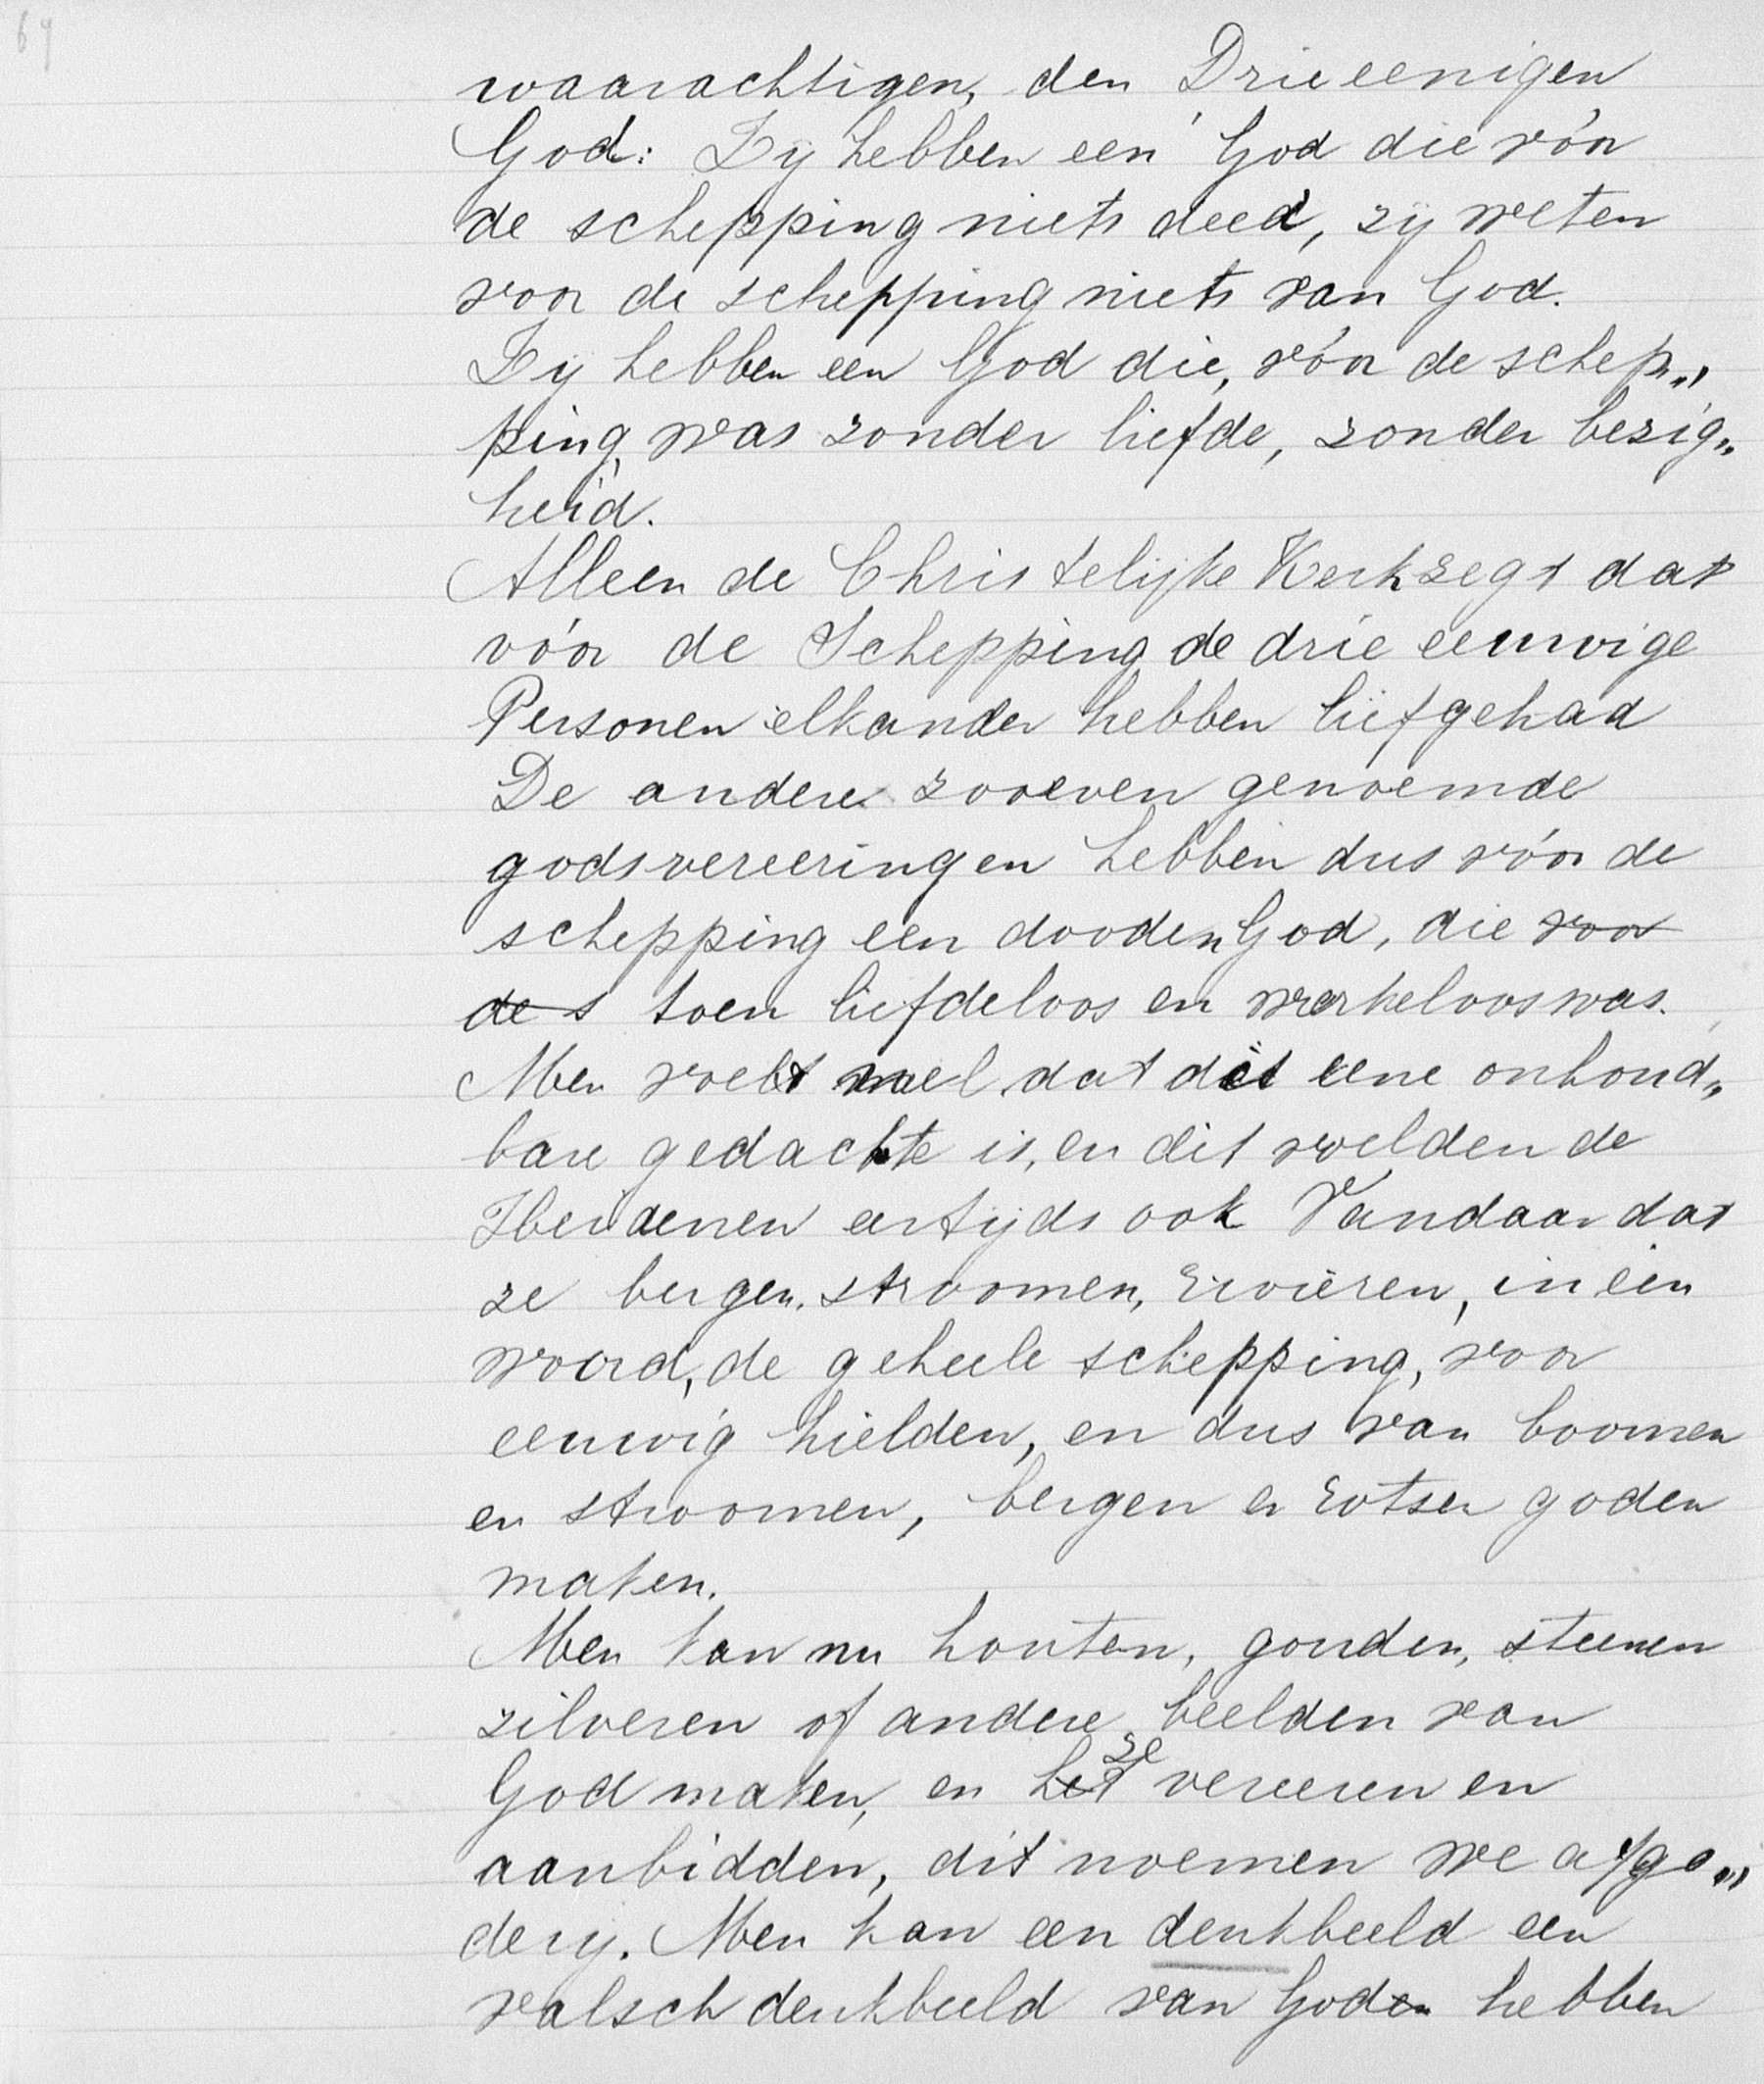 69
waarachtigen, den Drieeenigen
God: Zij hebben een God die vóór
de schepping niets deed, zij weten
voor de schepping niets van God.
Zij hebben een God die, vóór de schep„
ping, was zonder liefde, zonder bezig„
heid.
Alleen de Christelijke Kerk zegt dat
vóór de Schepping de drie eeuwige
Personen elkander hebben liefgehad
De andere zooeven genoemde
godsvereeringen hebben dus vóór de
schepping een dooden God, die voor
de s toen liefdeloos en werkeloos was.
Men voelt wel dat dit eene onhoud„
bare gedachte is, en dit voelden de
Heidenen eertijds ook Vandaar dat
ze bergen, stroomen, rivieren, in één
woord, de geheele schepping, voor
eeuwig hielden, en dus van boomen
en stroomen, bergen en rotsen goden
maken.
Men kan nu houten, gouden, steenen
zilveren of andere beelden van
God maken, en het ze vereeren en
aanbidden, dit noemen we afgo„
derij. Men kan een denkbeeld een
valsch denkbeeld van Goden hebben